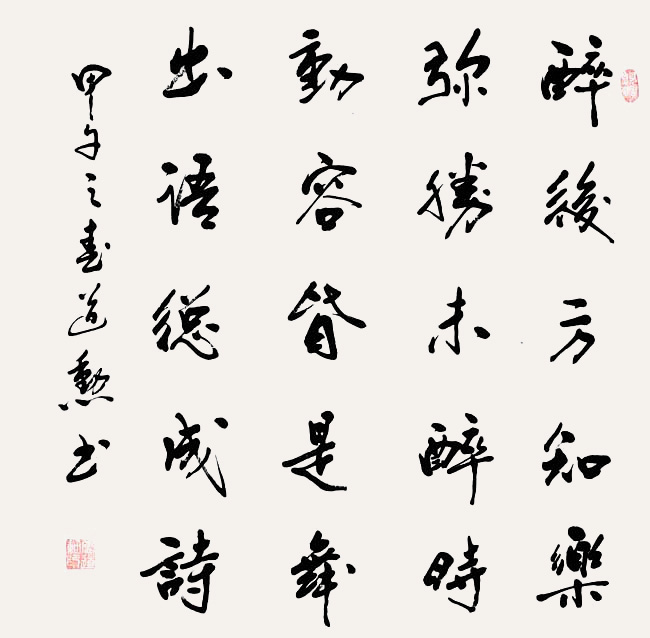 醉後方知樂
弥勝未醉時
動容皆是舞
出語總成詩
甲午之春道勳书